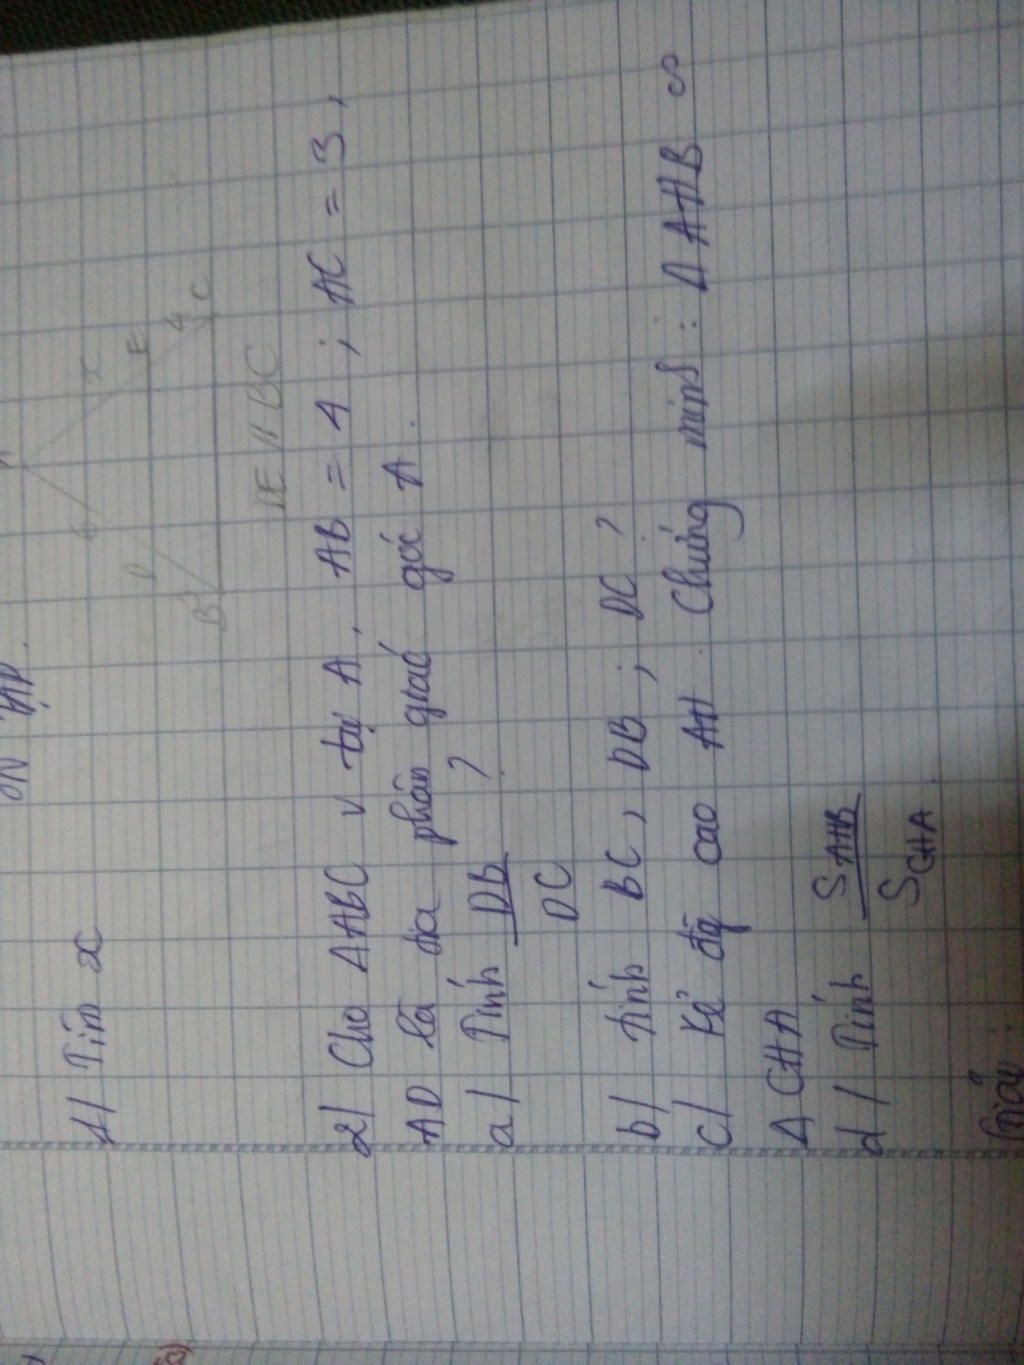 ÔN TẬP.
1/ Tìm x
A
6
x
D
E
B
4
C
DE // BC
2/ Cho ΔABC v tại A, AB = 4 ; AC = 3,
AD là tia phân giác góc A.
a/ Tính DB/DC ?
b/ tính BC, DB ; DC ?
c/ Kẻ đg cao AH. Chứng minh : Δ AHB ∽
Δ CHA
d/ Tính S AHB / S CHA.
Giải :